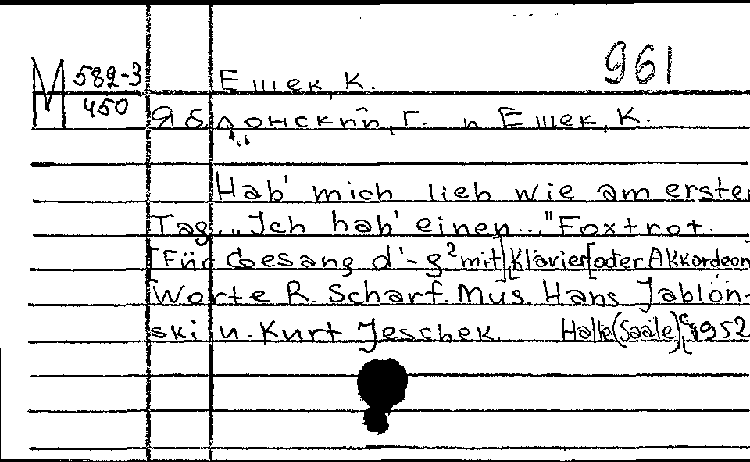 961
М 582-3 Ешек, К.
450
Яблонский, Г. и Ешек, К.
Hab' mich lieb wie am ersten
Tag. „Ich hab' einen..." Foxtrot.
[Für Gesang d'-g² mit] Klavier [oder Akkordeon
Worte R. Scharf. Mus. Hans Jablon-
ski u. Kurt Jeschek. Halle (Saale), 1952